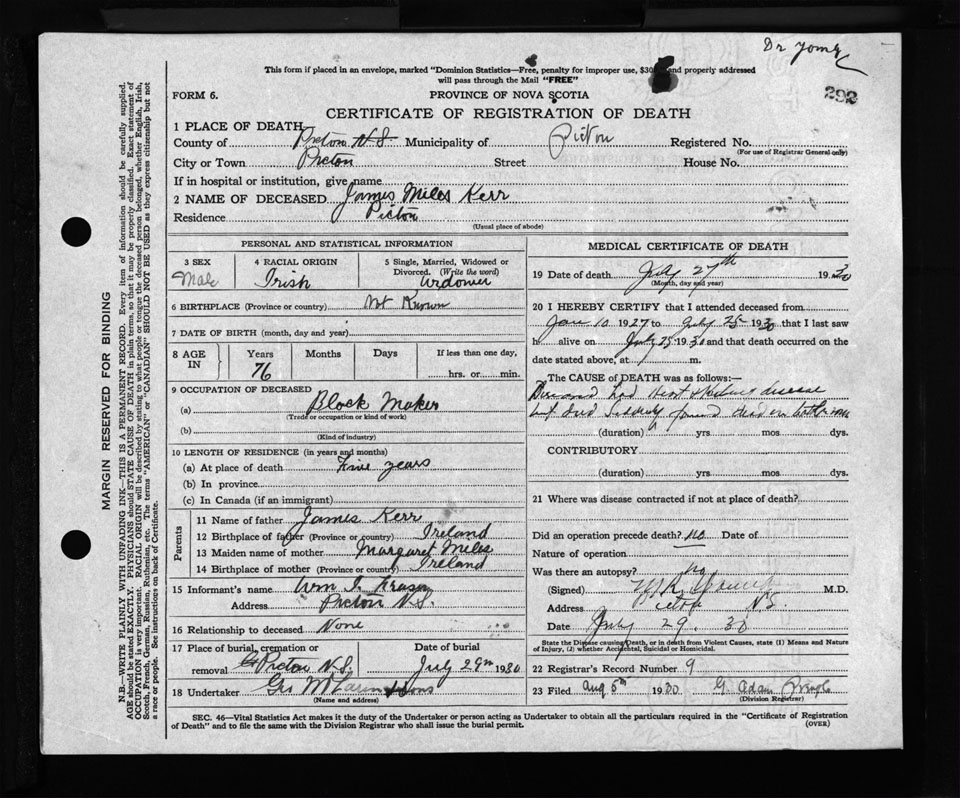 Dr Young
This form if placed in an envelope, marked "Dominion Statistics—Free, penalty for improper use, $30 and properly addressed
will pass through the Mail "FREE"
292
FORM 6.
PROVINCE OF NOVA SCOTIA
CERTIFICATE OF REGISTRATION OF DEATH
1 PLACE OF DEATH
County of Pictou N.S. Municipality of Pictou Registered No.
(For use of Registrar General only)
City or Town Pictou Street House No.
If in hospital or institution, give name
2 NAME OF DECEASED James Miles Kerr
Residence Pictou
(Usual place of abode)
PERSONAL AND STATISTICAL INFORMATION
3 SEX 4 RACIAL ORIGIN 5 Single, Married, Widowed or
Divorced. (Write the word)
Male Irish Widower
6 BIRTHPLACE (Province or country) Not Known
7 DATE OF BIRTH (month, day and year)
8 AGE IN Years Months Days If less than one day,
76 hrs. or min.
9 OCCUPATION OF DECEASED
(a) Block Maker
(Trade occupation or kind of work)
(b)
(Kind of industry)
10 LENGTH OF RESIDENCE (in years and months)
(a) At place of death Five years
(b) In province
(c) In Canada (if an immigrant)
Parents
11 Name of father James Kerr
12 Birthplace of father (Province or country) Ireland
13 Maiden name of mother Margaret Miles
14 Birthplace of mother (Province or country) Ireland
15 Informant's name Wm I. Fraser
Address Pictou N.S.
16 Relationship to deceased None
17 Place of burial, cremation or Date of burial
removal Pictou N.S. July 29th 1930
18 Undertaker Geo Sons
(Name and address)
MEDICAL CERTIFICATE OF DEATH
19 Date of death July 27th 1930
(Month, day and year)
20 I HEREBY CERTIFY that I attended deceased from
Jan 10 1927 to July 25 1930 that I last saw
h alive on July 25 1930 and that death occurred on the
date stated above, at m.
The CAUSE of DEATH was as follows:—
had heart & disease
but died suddenly found dead in
(duration) yrs mos dys.
CONTRIBUTORY
(duration) yrs mos dys.
21 Where was disease contracted if not at place of death?
Did an operation precede death? no Date of
Nature of operation
Was there an autopsy? no
(Signed) Young M.D.
Address Pictou N.S.
Date July 29. 30
State the Disease causing Death, or in death from Violent Causes, state (1) Means and Nature
of Injury, (2) whether Accidental, Suicidal or Homicidal.
22 Registrar's Record Number 9
23 Filed Aug 5th 1930 G. Adam
(Division Registrar)
SEC. 46—Vital Statistics Act makes it the duty of the Undertaker or person acting as Undertaker to obtain all the particulars required in the "Certificate of Registration
of Death" and to file the same with the Division Registrar who shall issue the burial permit. (OVER)
MARGIN RESERVED FOR BINDING
N.B.—WRITE PLAINLY WITH UNFADING INK—THIS IS A PERMANENT RECORD. Every item of information should be carefully supplied.
AGE should be stated EXACTLY. PHYSICIANS should STATE CAUSE OF DEATH in plain terms, so that it may be properly classified. Exact statement of
OCCUPATION is very important. RACIAL ORIGIN will be described by stating to what people or tongue the deceased person belonged, whether English, Irish,
Scotch, French, German, Russian, Ruthenian, etc. The terms "AMERICAN" or "CANADIAN" SHOULD NOT BE USED as they express citizenship but not
a race or people. See instructions on back of Certificate.